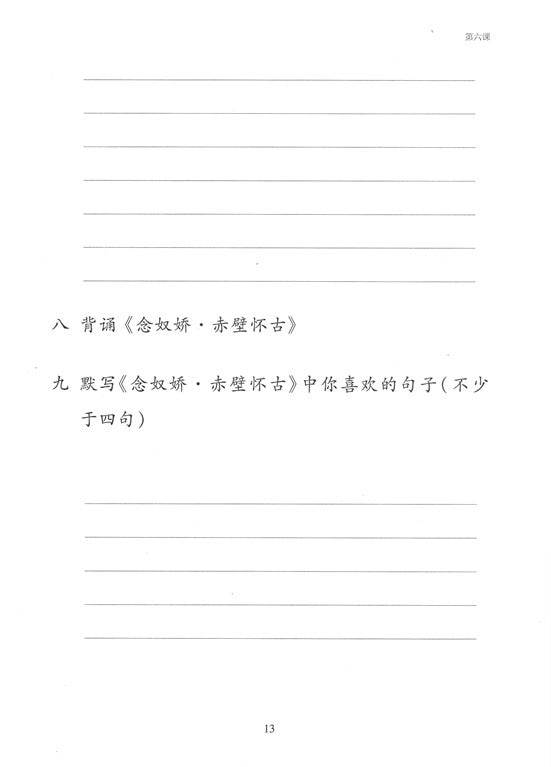 第六课
八 背诵《念奴娇·赤壁怀古》
九 默写《念奴娇·赤壁怀古》中你喜欢的句子(不少
于四句)
13